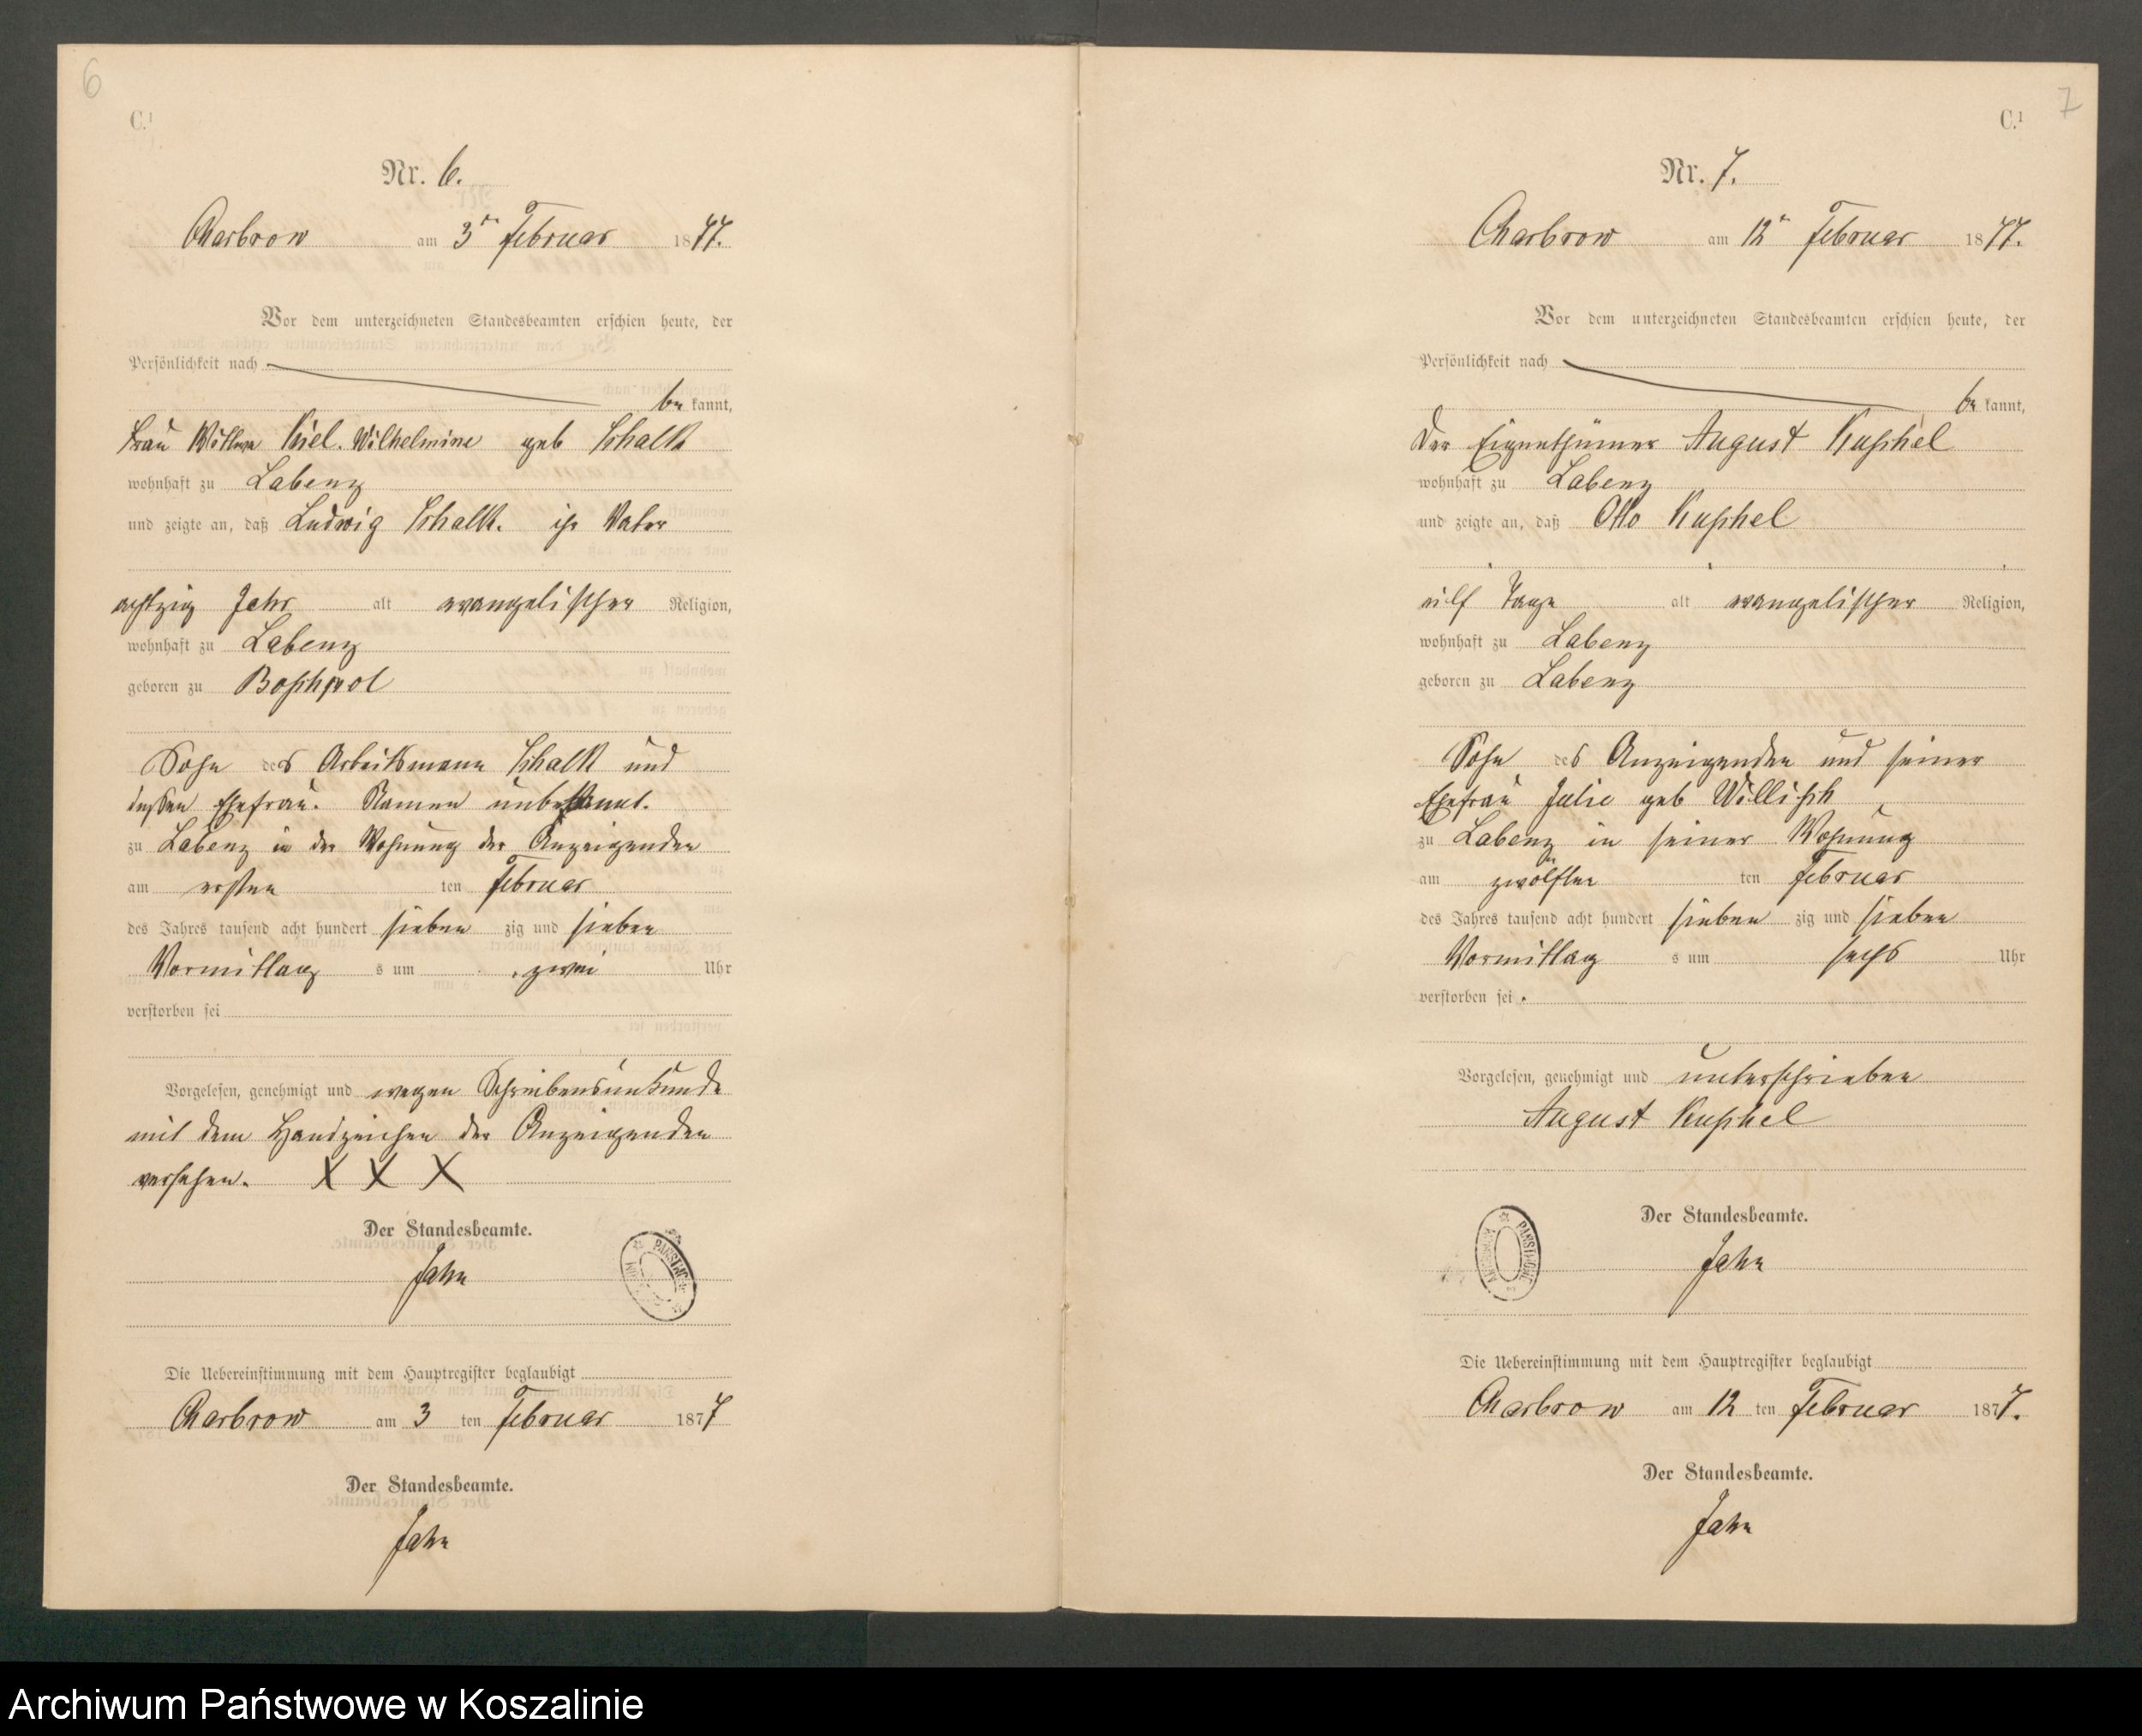 6
C.¹
Nr. 6.
Charbrow am 3ᵗ Februar 1877.
Vor dem unterzeichneten Standesbeamten erschien heute, der
Persönlichkeit nach
be kannt,
Frau Wittwe Kiel. Wilhelmine geb Schalk
wohnhaft zu Labenz
und zeigte an, daß Ludwig Schalk. ihr Vater
achtzig Jahr alt evangelischer Religion,
wohnhaft zu Labenz
geboren zu Boschpol
Sohn des Arbeitsmann Schalk und
dessen Ehefrau. Namen unbekannt.
zu Labenz in der Wohnung der Anzeigenden
am ersten ten Februar
des Jahres tausend acht hundert sieben zig und sieben
Vormittag s um zwei Uhr
verstorben sei
Vorgelesen, genehmigt und wegen Schreibensunkunde
mit dem Handzeichen der Anzeigenden
versehen. X X X
Der Standesbeamte.
Jahn
Die Uebereinstimmung mit dem Hauptregister beglaubigt
Charbrow am 3 ten Februar 1877
Der Standesbeamte.
Jahn
7
C.¹
Nr. 7.
Charbrow am 12ᵗ Februar 1877.
Vor dem unterzeichneten Standesbeamten erschien heute, der
Persönlichkeit nach
be kannt,
Der Eigenthümer August Kuschel
wohnhaft zu Labenz
und zeigte an, daß Otto Kuschel
eilf Tage alt evangelischer Religion,
wohnhaft zu Labenz
geboren zu Labenz
Sohn des Anzeigenden und seiner
Ehefrau Julie geb Willisch
zu Labenz in seiner Wohnung
am zwölften ten Februar
des Jahres tausend acht hundert sieben zig und sieben
Vormittag s um sechs Uhr
verstorben sei.
Vorgelesen, genehmigt und unterschrieben
August Kuschel
Der Standesbeamte.
Jahn
Die Uebereinstimmung mit dem Hauptregister beglaubigt
Charbrow am 12 ten Februar 1877.
Der Standesbeamte.
Jahn
Archiwum Państwowe w Koszalinie